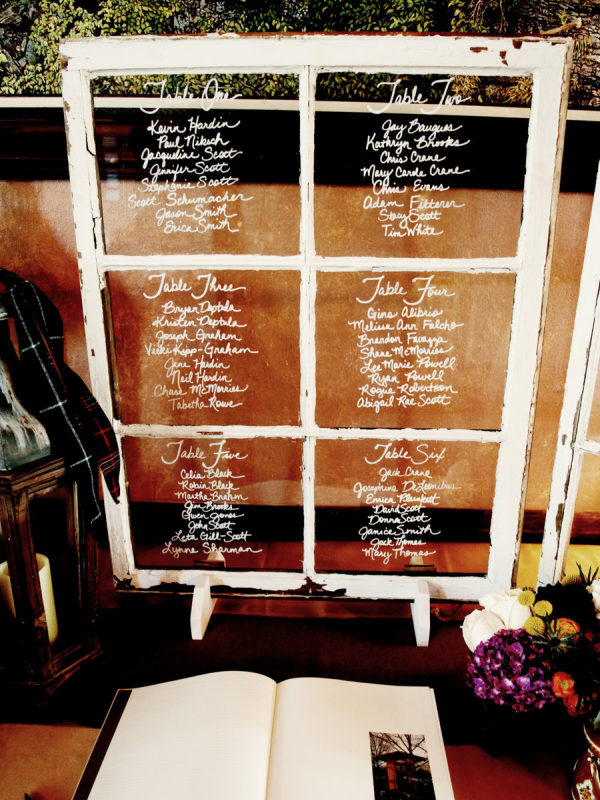 Table One
Kevin Hardin
Paul Niksch
Jacqueline Scott
Jennifer Scott
Stephanie Scott
Scott Schumacher
Jason Smith
Erica Smith
Table Two
Jay Baugues
Kathryn Brooks
Chris Crane
Mary Carole Crane
Chris Evans
Adam Fitterer
Stacy Scott
Tim White
Table Three
Bryan Deptula
Kristen Deptula
Joseph Graham
Vicki Kipp-Graham
Jane Hardin
Neil Hardin
Chase McMorries
Tabetha Rowe
Table Four
Gino Alibrio
Melissa Ann Falcho
Brandon Favazza
Shane McMorries
Lee Marie Powell
Ryan Powell
Rogue Robertson
Abigail Rae Scott
Table Five
Celia Black
Robin Black
Martha Brahm
Jim Brooks
Gwen Jones
John Scott
Leta Gill-Scott
Lynne Sharman
Table Six
Jack Crane
Josephine DeLeonibus
Enrica Plunkett
David Scott
Donna Scott
Janice Smith
Jack Thomas
Mary Thomas